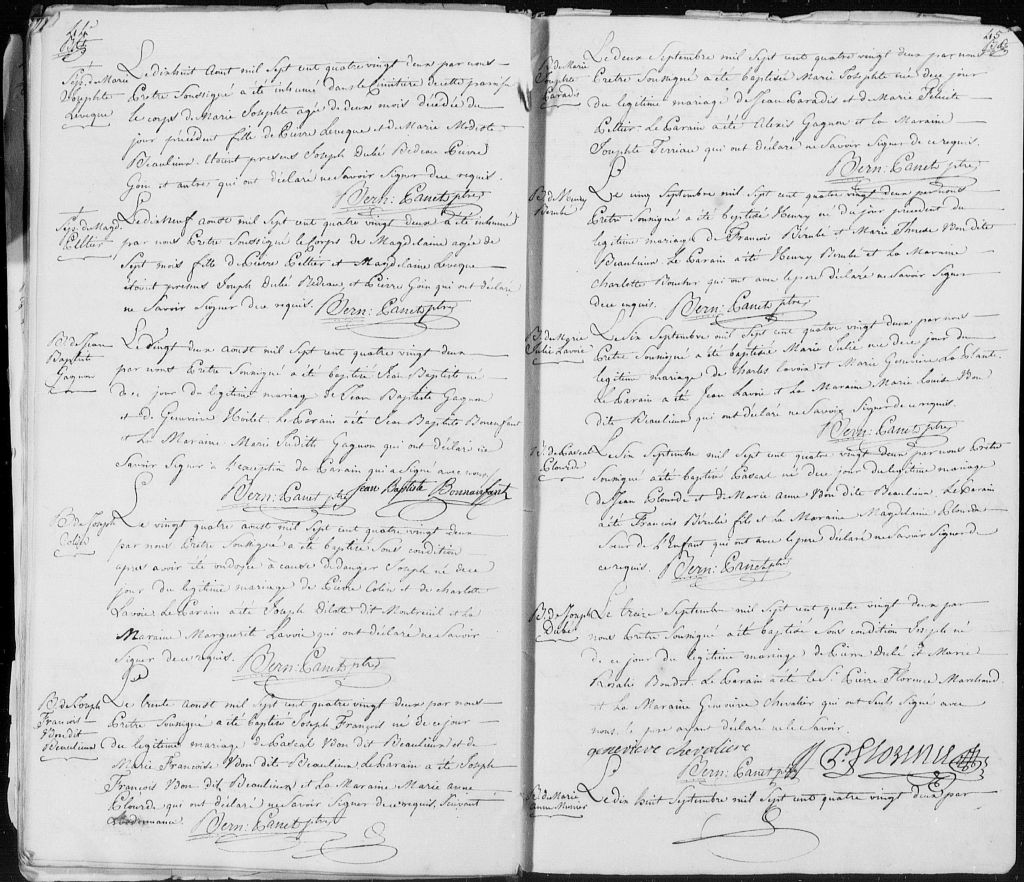 44e
Sep. de Marie
Josephte
Leveque
Le dixhuit Aout mil Sept cent quatre vingt deux par nous
Prêtre Soussigné a été inhumé dans le Cimitiere de cette paroisse
le corps de Marie Josephte agée de deux mois décédée du
jour précédent fille de Pierre Levêque et de Marie Modeste
Beaulieu. etoient presens Joseph Dubé Bedeau Pierre
Goin et autres qui ont déclaré ne Savoir Signer de ce requis.
Bern: Panet ptre
Sep. de Magd.
Peltier
Le dixneuf aoust mil Sept cent quatre vingt deux a été inhumé
par nous Prêtre Soussigné le Corps de Magdelaine agée de
Sept mois fille de Pierre Peltier et Magdelaine Leveque
etoient presens Joseph Dubé Bedeau, et Pierre Goin qui ont déclaré
ne Savoir Signer de ce requis. Bern: Panet ptre
B. de Jean
Baptiste
Gagnon
Le vingt deux aoust mil Sept cent quatre vingt deux
par nous Prêtre Soussigné a été baptisé Jean Baptiste né
de ce jour du légitime mariage de Jean Baptiste Gagnon
et de Geneviève Miolet. Le Parain a été Jean Baptiste Bonenfant
et La Maraine Marie Judith Gagnon qui ont déclaré ne
Savoir Signer à l'exception du Parain qui a Signé avec nous.
Bern: Panet ptre jean Baptiste Bonnanfant
B. de Joseph
Colin
Le vingt quatre aoust mil Sept cent quatre vingt deux
par nous Prêtre Soussigné a été baptisé Sous condition
apres avoir été ondoyé à cause de danger Joseph né de ce
jour du légitime mariage de Pierre Colin et de charlotte
Lavoie Le Parain a été Joseph Pilote dit Montreuil et La
Maraine Marguerit Lavoie qui ont déclaré ne Savoir
Signer de ce requis. Bern: Panet ptre
B. de Joseph
Francois
Bon dit
Beaulieu
Le trente Aoust mil Sept cent quatre vingt deux par nous
Prêtre Soussigné a été baptisé Joseph François né de ce jour
du légitime mariage de Pascal Bon dit Beaulieu et de
Marie Francoise Bon dit Beaulieu Le Parain a été Joseph
François Bon dit Beaulieu et La Maraine Marie Anne
Plourde qui ont déclaré ne Savoir Signer de ce requis. Suivant
L'ordonnance. Bern: Panet ptre
45
B. de Marie
Josephte
Paradis
Le deux Septembre mil Sept cent quatre vingt deux par nous
Prêtre Soussigné a été baptisée Marie Josephte né de ce jour
du legitime mariage de Jean Paradis et de Marie Felicité
Peltier. Le Parain a été Alexis Gagnon et la Maraine
Josephte Terriau qui ont déclaré ne Savoir Signer de ce requis.
Bern: Panet ptre
B. de Henry
Berubé
Le cinq Septembre mil Sept cent quatre vingt deux par nous
Prêtre Soussigné a été baptisé Henry né du jour précédent du
legitime mariage de François Bérubé et Marie Therese Bon dite
Beaulieu. Le Parain a été Henry Berubé et La Maraine
Charlotte Boucher qui ont avec le pere déclaré ne Savoir Signer
de ce requis. Bern: Panet ptre
B. de Marie
Julie Lavoie
Le Six Septembre mil Sept cent quatre vingt deux par nous
Prêtre Soussigné a été baptisée Marie Julie née de ce jour du
légitime mariage de Charles Lavoie et Marie Genevieve La Plante.
Le Parain a été Jean Lavoie et La Maraine Marie Louise Bon
dite Beaulieu qui ont déclaré ne Savoir Signer de ce requis.
Bern: Panet ptre
B. de Pascal
Plourde
Le Six Septembre mil Sept cent quatre vingt deux par nous Prêtre
Soussigné a été baptisé Pascal né de ce jour du légitime mariage
de Jean Plourde et de Marie Anne Bon dite Beaulieu. Le Parain
a été François Bérubé fils et La Maraine Magdelaine Plourde
Sœur de L'Enfant qui ont avec le pere déclaré ne Savoir Signer de
ce requis. Bern: Panet ptre
B. de Joseph
Dubé
Le treize Septembre mil Sept cent quatre vingt deux par
nous Prêtre Soussigné a été baptisé Sous condition Joseph né
de ce jour du legitime mariage de Pierre Dubé et Marie
Rosalie Boudet. Le Parain a été le Sr. Pierre Florence Marchand
et La Maraine Genevieve Chevalier qui ont Seuls Signé avec
nous. le pere ayant déclaré ne le Savoir.
genevieve chevaliere
Bern: Panet ptre P. Florence
B. de Marie
Anne Mivier
Le dix huit Septembre mil Sept cent quatre vingt deux par